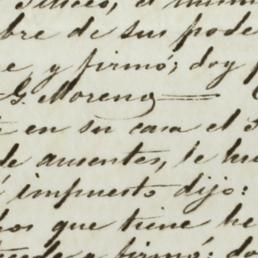 el
bre de sus pode
e y firmó; doy
G. Moreno
en su casa el
de ausentes, le hi
impuesto dijo:
hos que tiene he
firmó: do